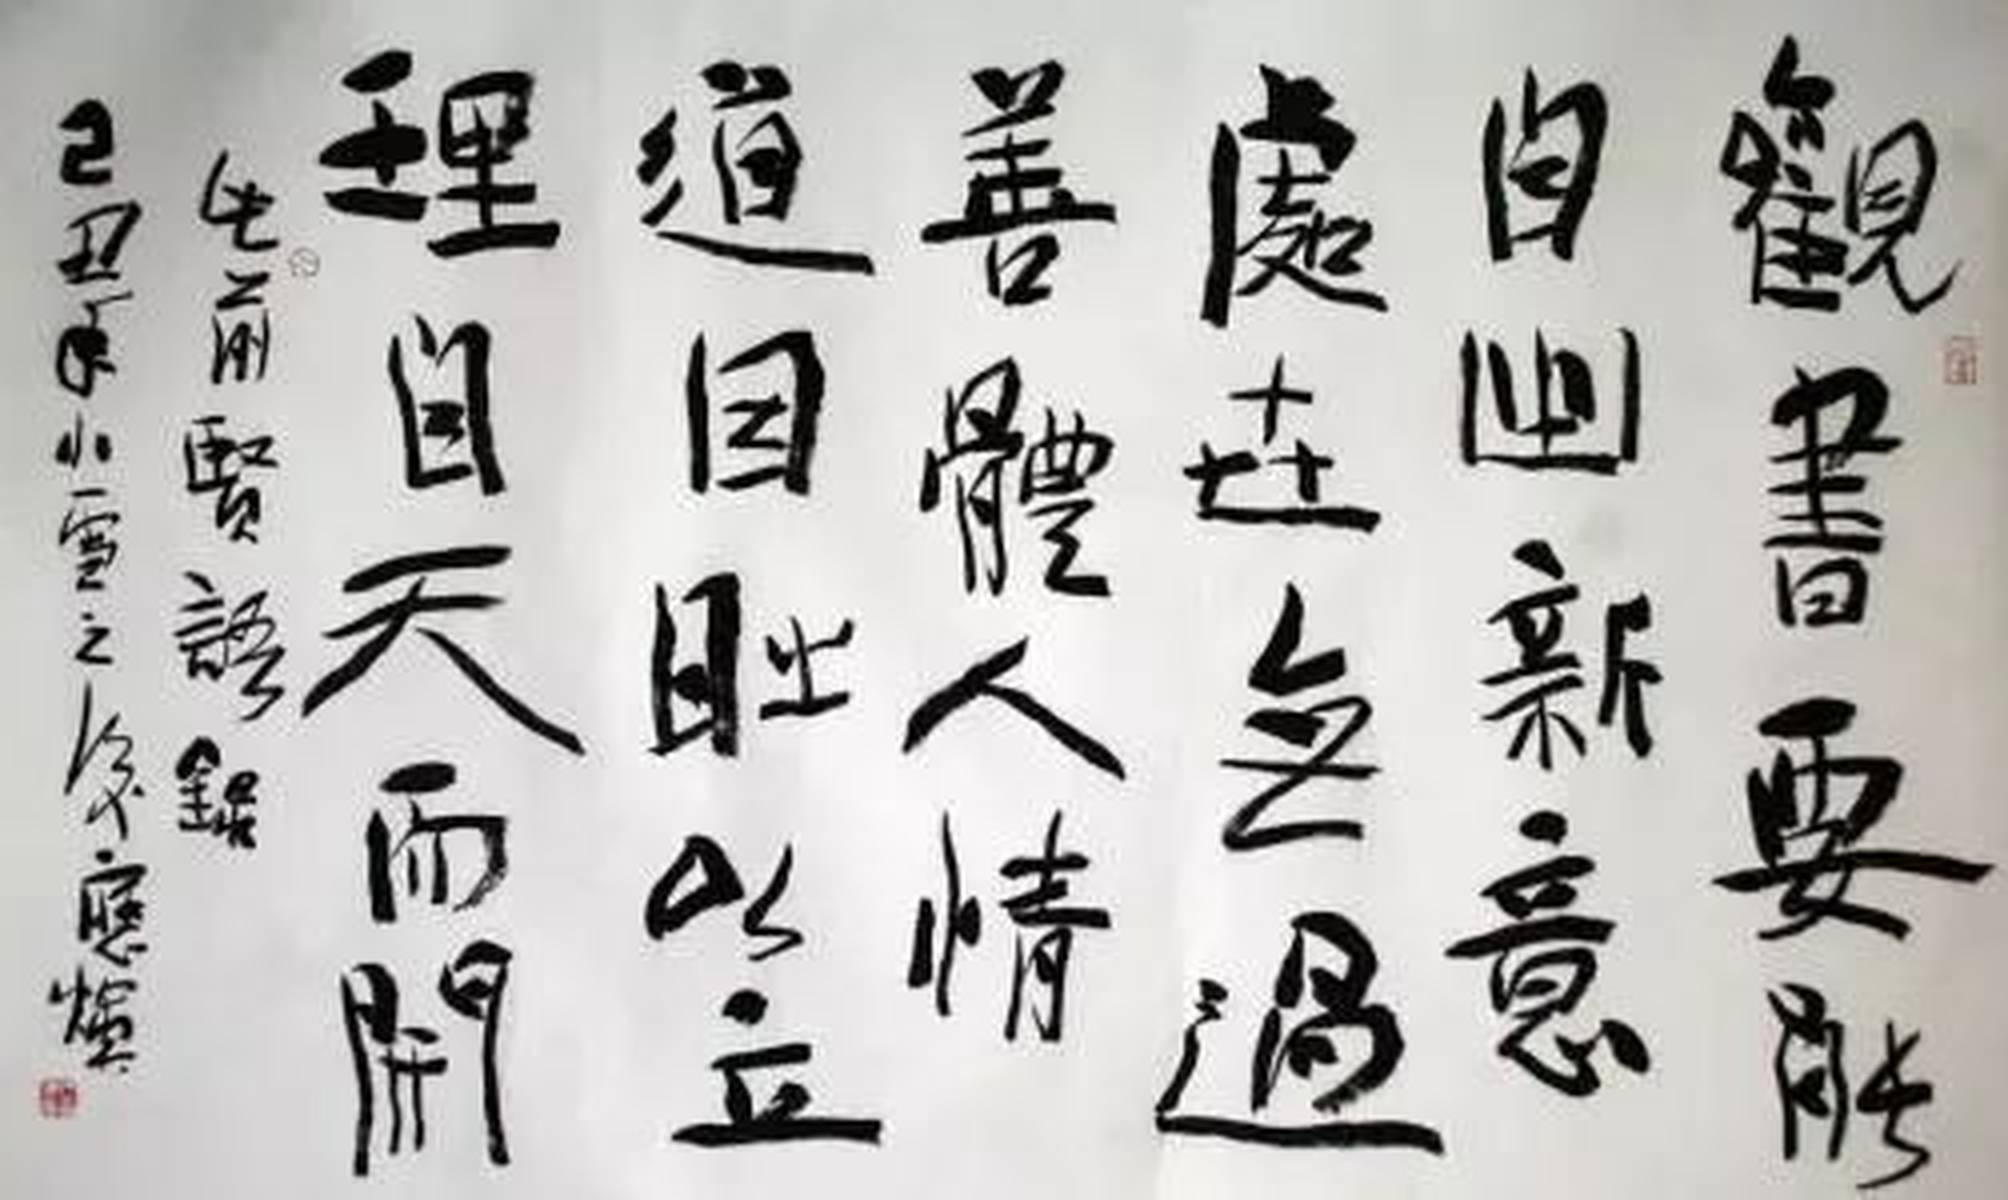 觀書要能
自出新意
處世無過
善體人情
道因時以立
理自天而開
先前賢語錄
己丑年小雪之後應煌